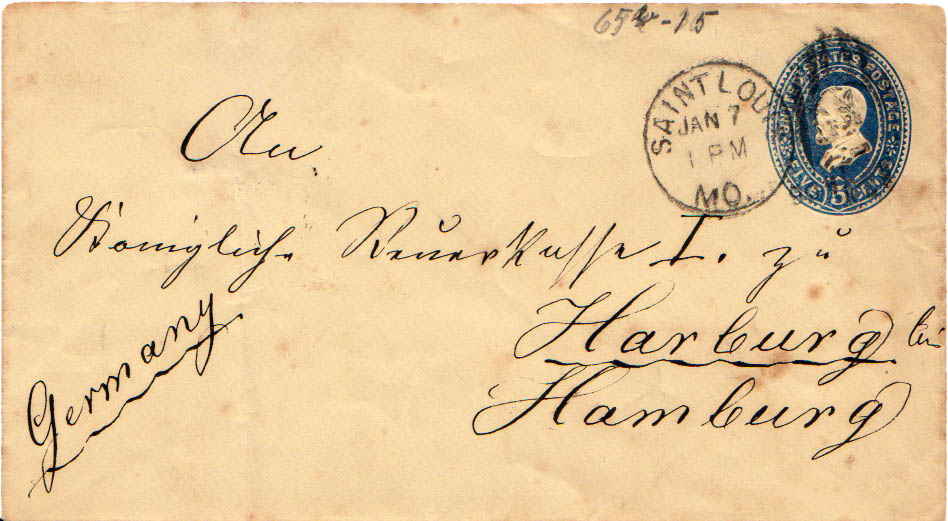 65 -15
SAINT LOUI
JAN 7
1 PM
MO.
UNITED STATES POSTAGE
FIVE 5 CENTS
An
Königliche Steuer Kasse I. zu
Harburg bei
Hamburg
Germany